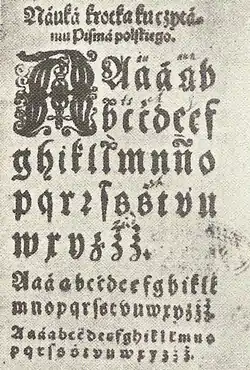 Náuká krotka ku czytá-
niu Pisma polskiego.
A a á ą b
b c ć d e e f
g h i k l ł m n ñ o
p q r ꝛ ſ s ś t v u
w x y z ż ź.
A a á ą b c ć d e e f g h i k l ł
m n o p q r ſ s t v u w x y z ż ź
A a á ą b c ć d e e f g h i k l ł m n o
p q r ſ s ś t v u w x y z ż ź.